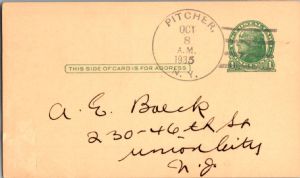 PITCHER,
OCT
8
A.M.
1935
N.Y.
THIS SIDE OF CARD IS FOR ADDRESS
A. E. Boeck
230-46th St
Union City
N.J.